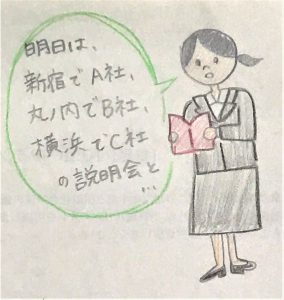 明日は、
新宿でA社、
丸ノ内でB社、
横浜でC社
の説明会と
…